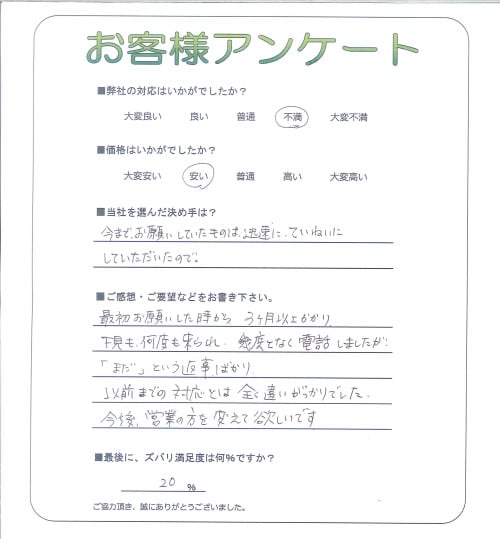 お客様アンケート
■弊社の対応はいかがでしたか?
大変良い 良い 普通 不満 大変不満
■価格はいかがでしたか?
大変安い 安い 普通 高い 大変高い
■当社を選んだ決め手は?
今まで、お願いしていたものは、迅速に、ていねいに
していただいたので。
■ご感想・ご要望などをお書き下さい。
最初お願いした時から 3ヶ月以上かかり、
下見も、何度も来られ、幾度となく電話しましたが
「まだ」という返事ばかり、
以前までの対応とは全く違いがっかりでした。
今後、営業の方を変えて欲しいです
■最後に、ズバリ満足度は何%ですか?
20 %
ご協力頂き、誠にありがとうございました。